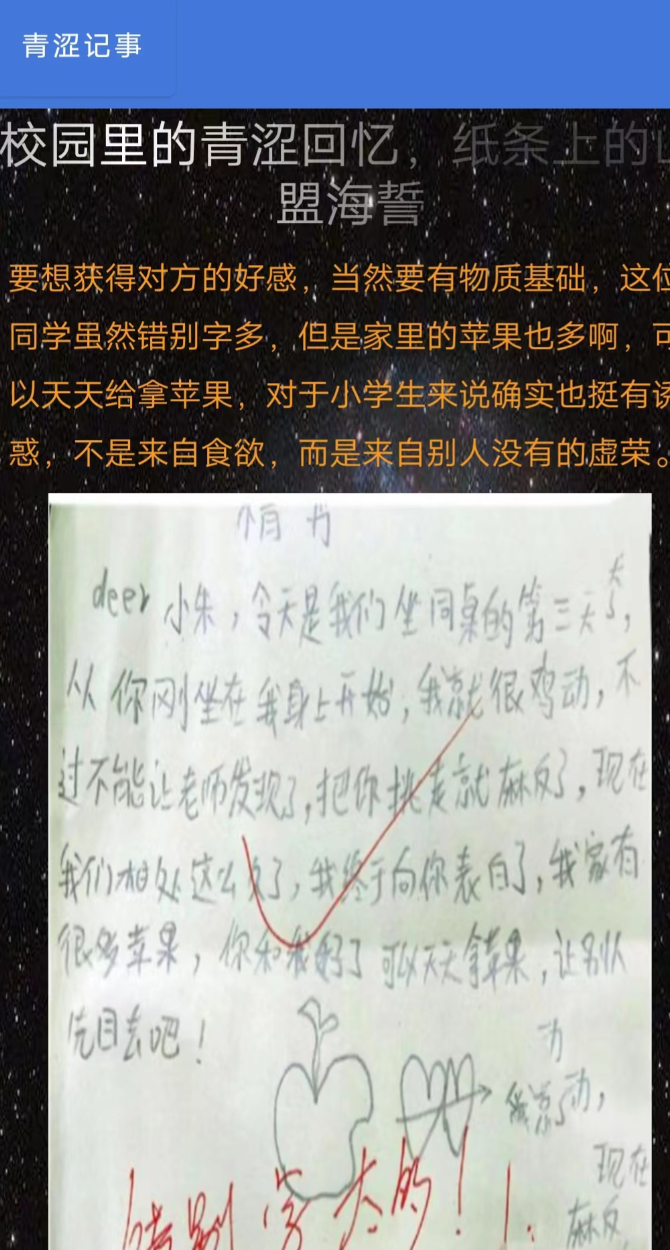 青涩记事
校园里的青涩回忆，纸条上的
盟海誓
要想获得对方的好感，当然要有物质基础，这位
同学虽然错别字多，但是家里的苹果也多啊，可
以天天给拿苹果，对于小学生来说确实也挺有诱
惑，不是来自食欲，而是来自别人没有的虚荣。
情书
deer 小朱，今天是我们坐同桌的第三天了，
从你刚坐在我身上开始，我就很鸡动，不
过不能让老师发现了，把你挑走就麻反了，现在
我们相处这么反了，我终于向你表白了，我家有
很多苹果，你和我好了可以天天拿苹果，让别人
先目去吧！
动
动，
现在
麻反
错别字太的！！